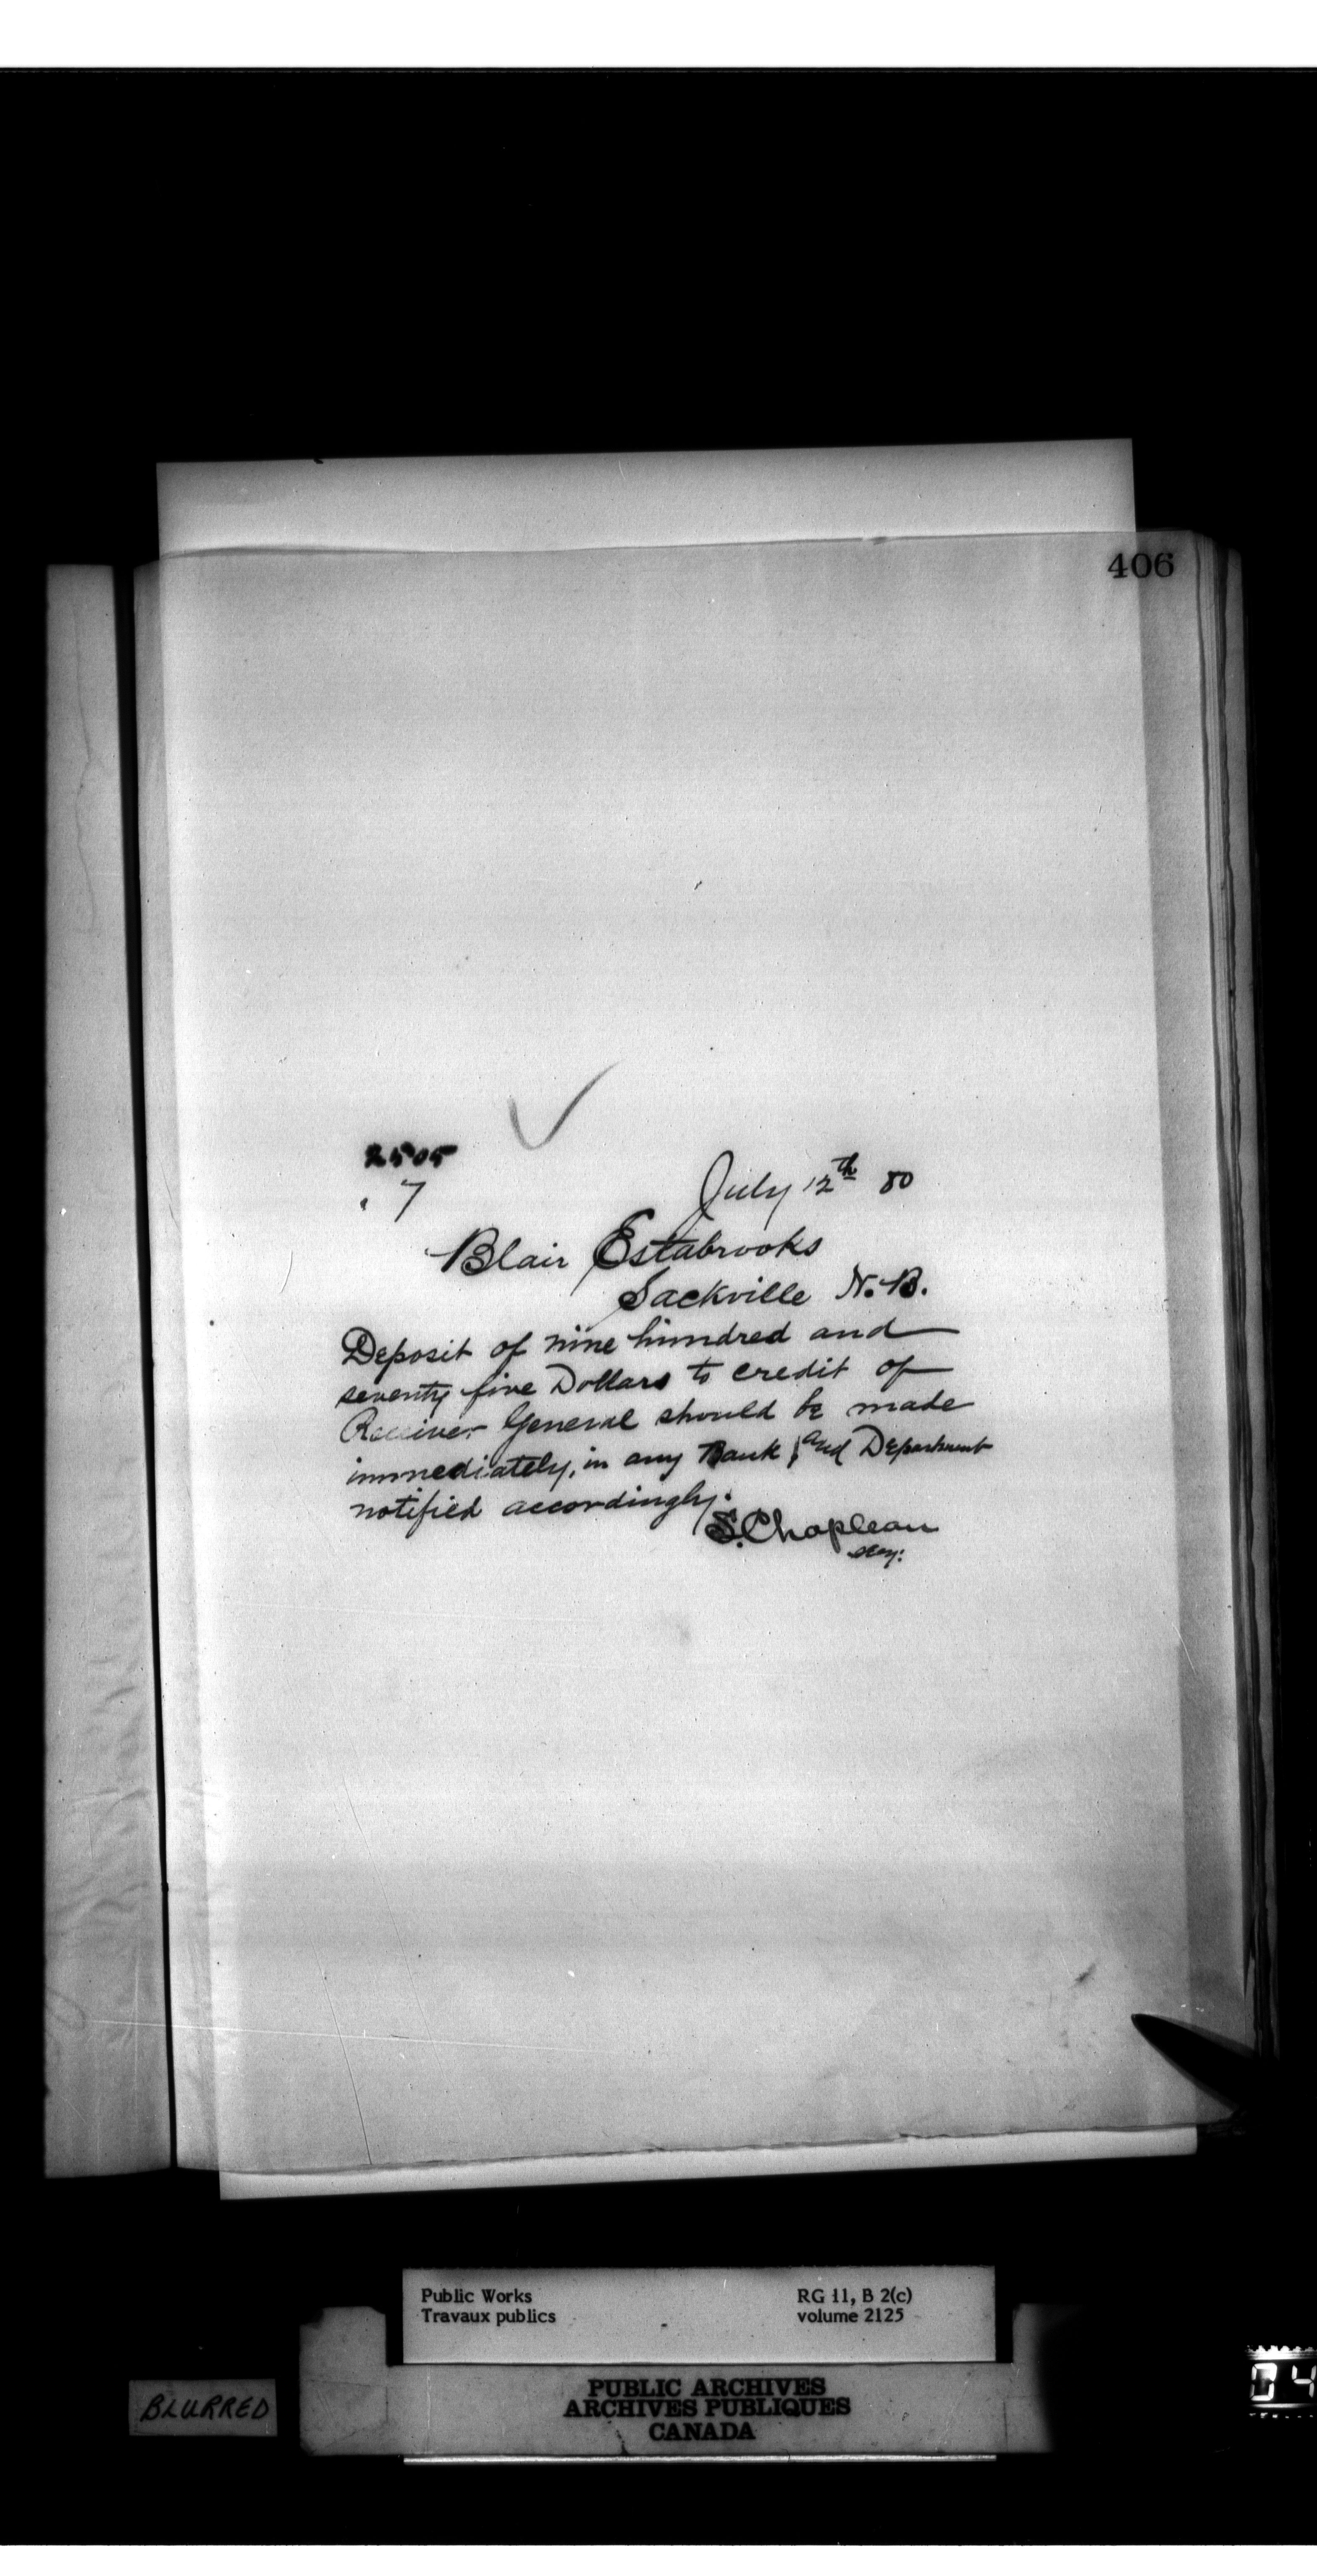 406
2505
7
July 12th 80
Blair Estabrooks
Sackville N.B.
Deposit of nine hundred and
seventy five Dollars to credit of
Receiver General should be made
immediately, in any Bank, and Department
notified accordingly.
S. Chapleau
Secy:
Public Works RG 11, B 2(c)
Travaux publics volume 2125
PUBLIC ARCHIVES
ARCHIVES PUBLIQUES
CANADA
BLURRED
04